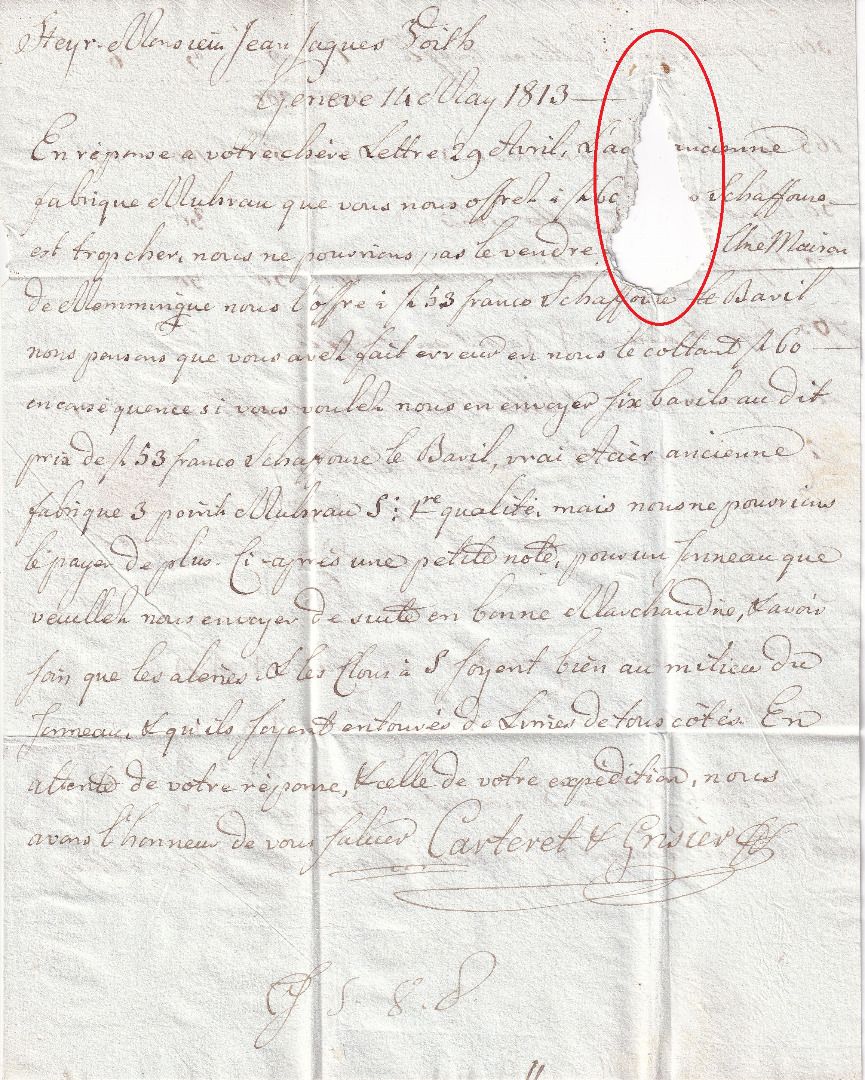 Steyr. Monsieur Jean Jaques Voith
Geneve 14 May 1813
En réponse a votre chère Lettre 29 Avril, L'ac ancienne
fabrique que vous nous offrez à f 60 o Schaffouse
est trop cher, nous ne pourrions pas le vendre. Une Maison
de Memmingue nous l'offre à f 53 franco Schaffouse le Baril
nous pensons que vous avez fait erreur en nous le cottant f 60
en conséquence si vous voulez nous en envoyer six barils au dit
prix de f 53 franco Schaffouse le Baril, vrai acier ancienne
fabrique 3 qualité, mais nous ne pourrions
le payer de plus. Ci-après une petite note, pour un Tonneau que
veuillez nous envoyer de suite en bonne Marchandise, & avoir
soin que les alenes & les Clous à S soyent bien au milieu du
Tonneau & qu'ils soyent entourés de Limes de tous côtés. En
attente de votre réponse, & celle de votre expédition, nous
avons l'honneur de vous saluer Carteret & Grisier